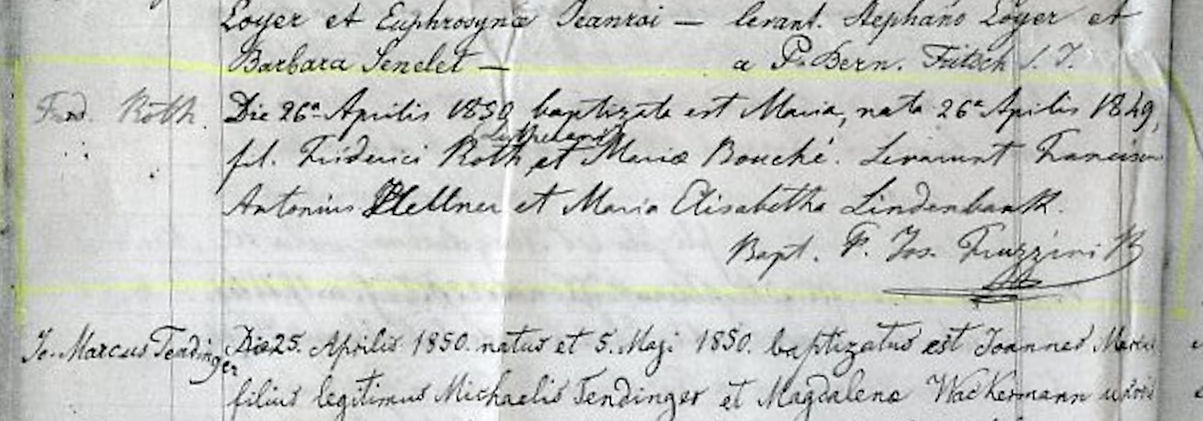 Loyer et Euphrosynæ Jeanrai — levant. Stephano Loyer et
Barbara Senelet — a P. Bern. Fritsch S. J.
Roth. Die 26a Aprilis 1850 baptizata est Maria, nata 26a Aprilis 1849,
fil. Friderici Roth et Mariæ Bouché. Levarunt
Antonius et Maria Elisabetha Lindenbank.
Bapt. P. Jos. Fruzzini
Jo. Marcus Tendinger Die 25. Aprilis 1850. natus et 5. Maji 1850. baptizatus est Joannes
filius legitimus Michaelis Tendinger et Magdalena Wackermann